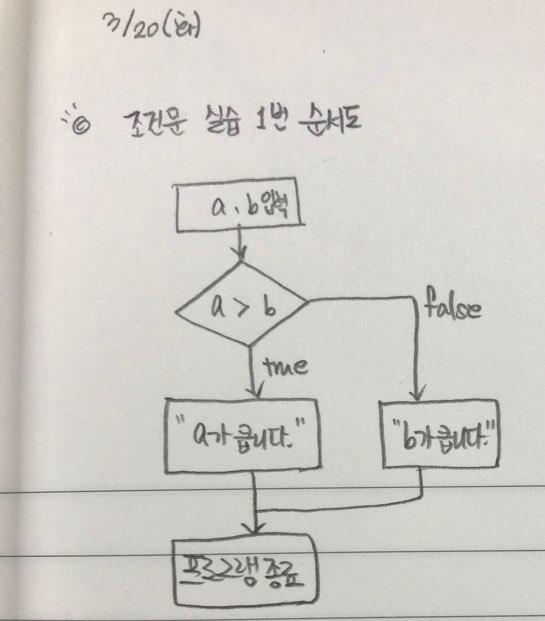 3/20(화)
◎ 조건문 실습 1번 순서도
a, b입력
a > b
false
true
"a가 큽니다."
"b가 큽니다."
프로그램 종료